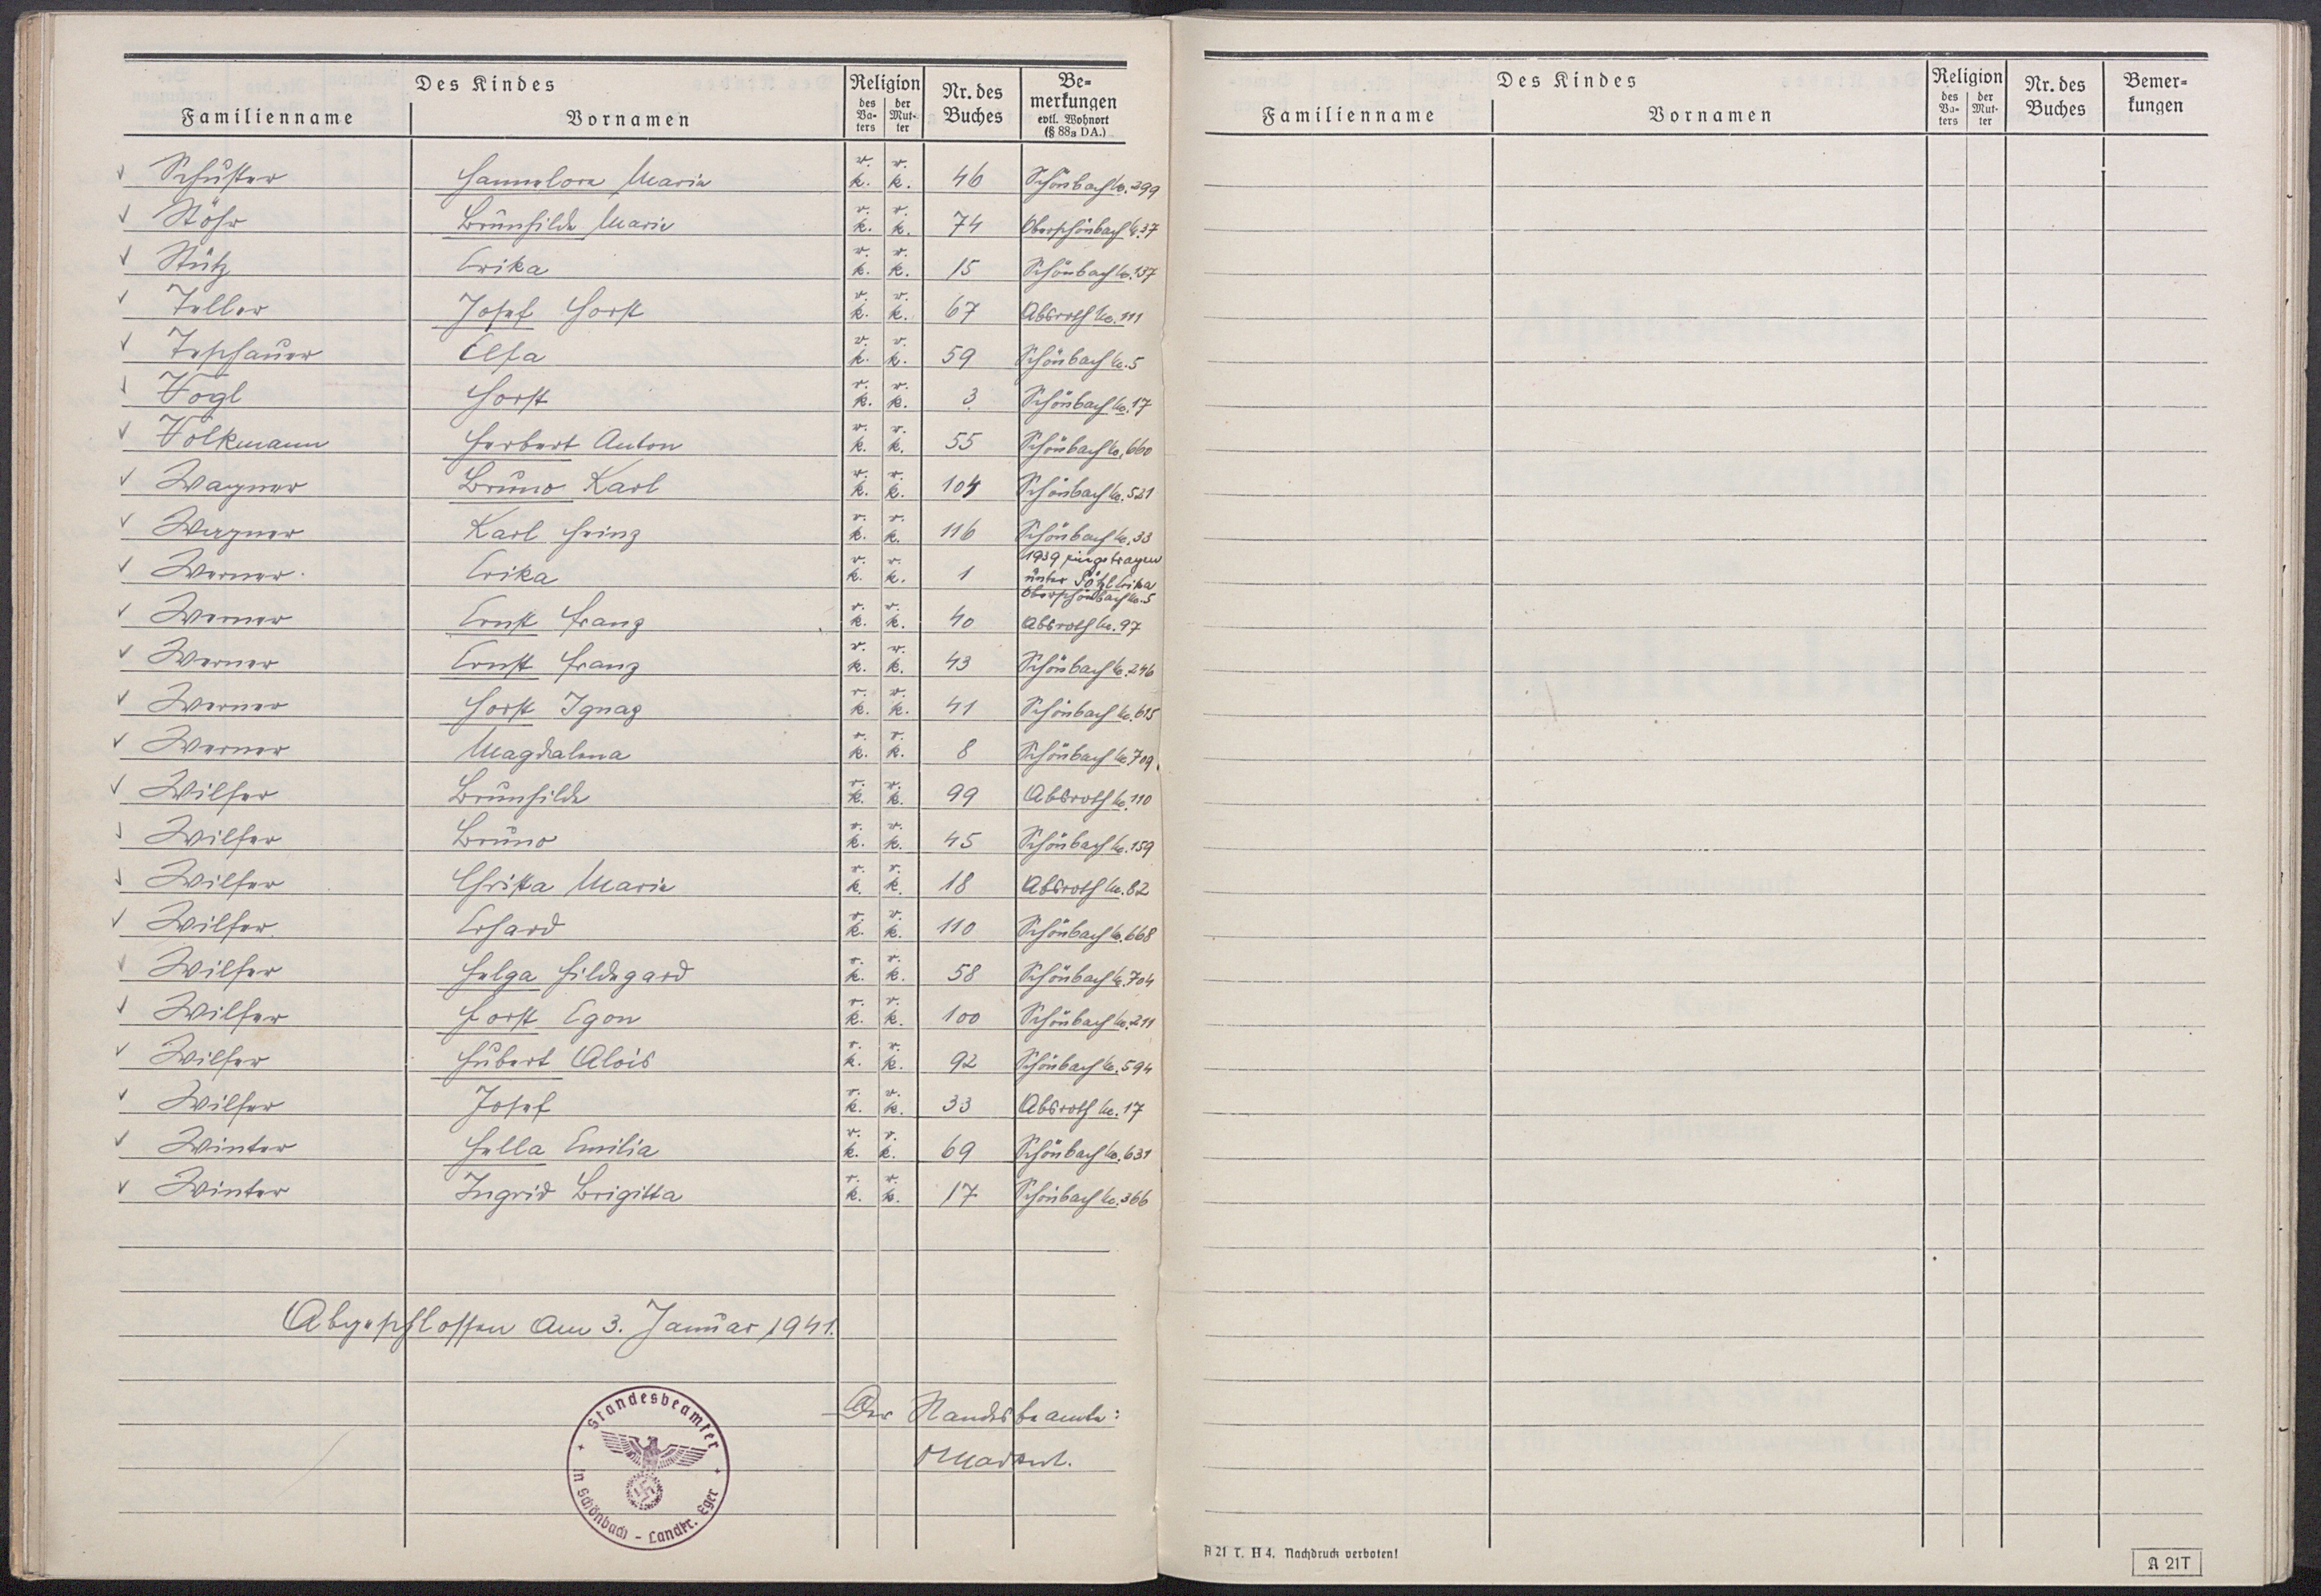 Des Kindes Religion Nr. des Buches Be-merkungen evtl. Wohnort (§ 88a DA.)
Familienname Vornamen des Va-ters der Mut-ter
Schuster Hannelore Maria r. k. r. k. 46 Schönbach No. 299
Stöhr Brünhilde Marie r. k. r. k. 74 Oberschönbach No. 37
Stütz Erika r. k. r. k. 15 Schönbach No. 137
Teller Josef Horst r. k. r. k. 67 Absroth No. 111
Teschauer Elsa r. k. r. k. 59 Schönbach No. 5
Vogl Horst r. k. r. k. 3 Schönbach No. 17
Volkmann Herbert Anton r. k. r. k. 55 Schönbach No. 660
Wagner Bruno Karl r. k. r. k. 104 Schönbach No. 521
Wagner Karl Heinz r. k. r. k. 116 Schönbach No. 33
Werner Erika r. k. r. k. 1 1939 eingetragen unter Pötzl Erika Oberschönbach No. 5
Werner Ernst Franz r. k. r. k. 40 Absroth No. 97
Werner Ernst Franz r. k. r. k. 43 Schönbach No. 246
Werner Horst Ignaz r. k. r. k. 41 Schönbach No. 615
Werner Magdalena r. k. r. k. 8 Schönbach No. 709
Wilfer Brunhilde r. k. r. k. 99 Absroth No. 110
Wilfer Bruno r. k. r. k. 45 Schönbach No. 159
Wilfer Christa Marie r. k. r. k. 18 Absroth No. 82
Wilfer Erhard r. k. r. k. 110 Schönbach No. 668
Wilfer Helga Hildegard r. k. r. k. 58 Schönbach No. 704
Wilfer Horst Egon r. k. r. k. 100 Schönbach No. 211
Wilfer Hubert Alois r. k. r. k. 92 Schönbach No. 594
Wilfer Josef r. k. r. k. 33 Absroth No. 17
Winter Hella Emilia r. k. r. k. 69 Schönbach No. 631
Winter Ingrid Brigitta r. k. r. k. 17 Schönbach No. 366
Abgeschlossen am 3. Januar 1941.
Der Standesbeamte:
Standesbeamter
in Schönbach - Landkr. Eger
Des Kindes Religion Nr. des Buches Bemer-kungen
Familienname Vornamen des Va-ters der Mut-ter
A 21 T. H 4. Nachdruck verboten!
A 21T